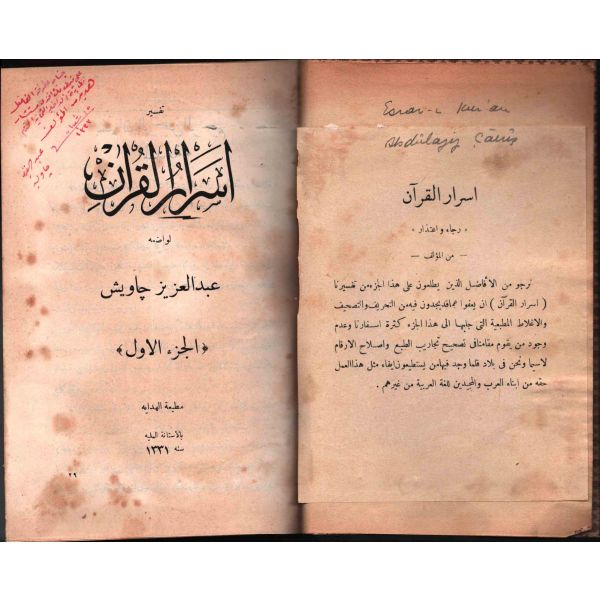 Esrar-ı Kur'an
Abdülaziz Çâviş
اسرار القرآن
« رجاء واعتذار »
— من المؤلف —
نرجو من الأفاضل الذين يطلعون على هذا الجزء من تفسيرنا
( اسرار القرآن ) ان يعفوا عما قد يجدون فيه من التحريف والتصحيف
والاغلاط المطبعية التى جلبها الى هذا الجزء كثرة اسفارنا وعدم
وجود من يقوم مقامنا فى تصحيح تجاريب الطبع واصلاح الارقام
لاسيما ونحن فى بلاد قلما وجد فيها من يستطيعون ايفاء مثل هذا العمل
حقه من ابناء العرب والمجيدين للغة العربية من غيرهم .
تفسير
اسرار القرآن
لواضعه
عبد العزيز چاويش
﴿ الجزء الاول ﴾
مطبعة الهدايه
بالاستانة العليه
سنه ١٣٣١
٢٩